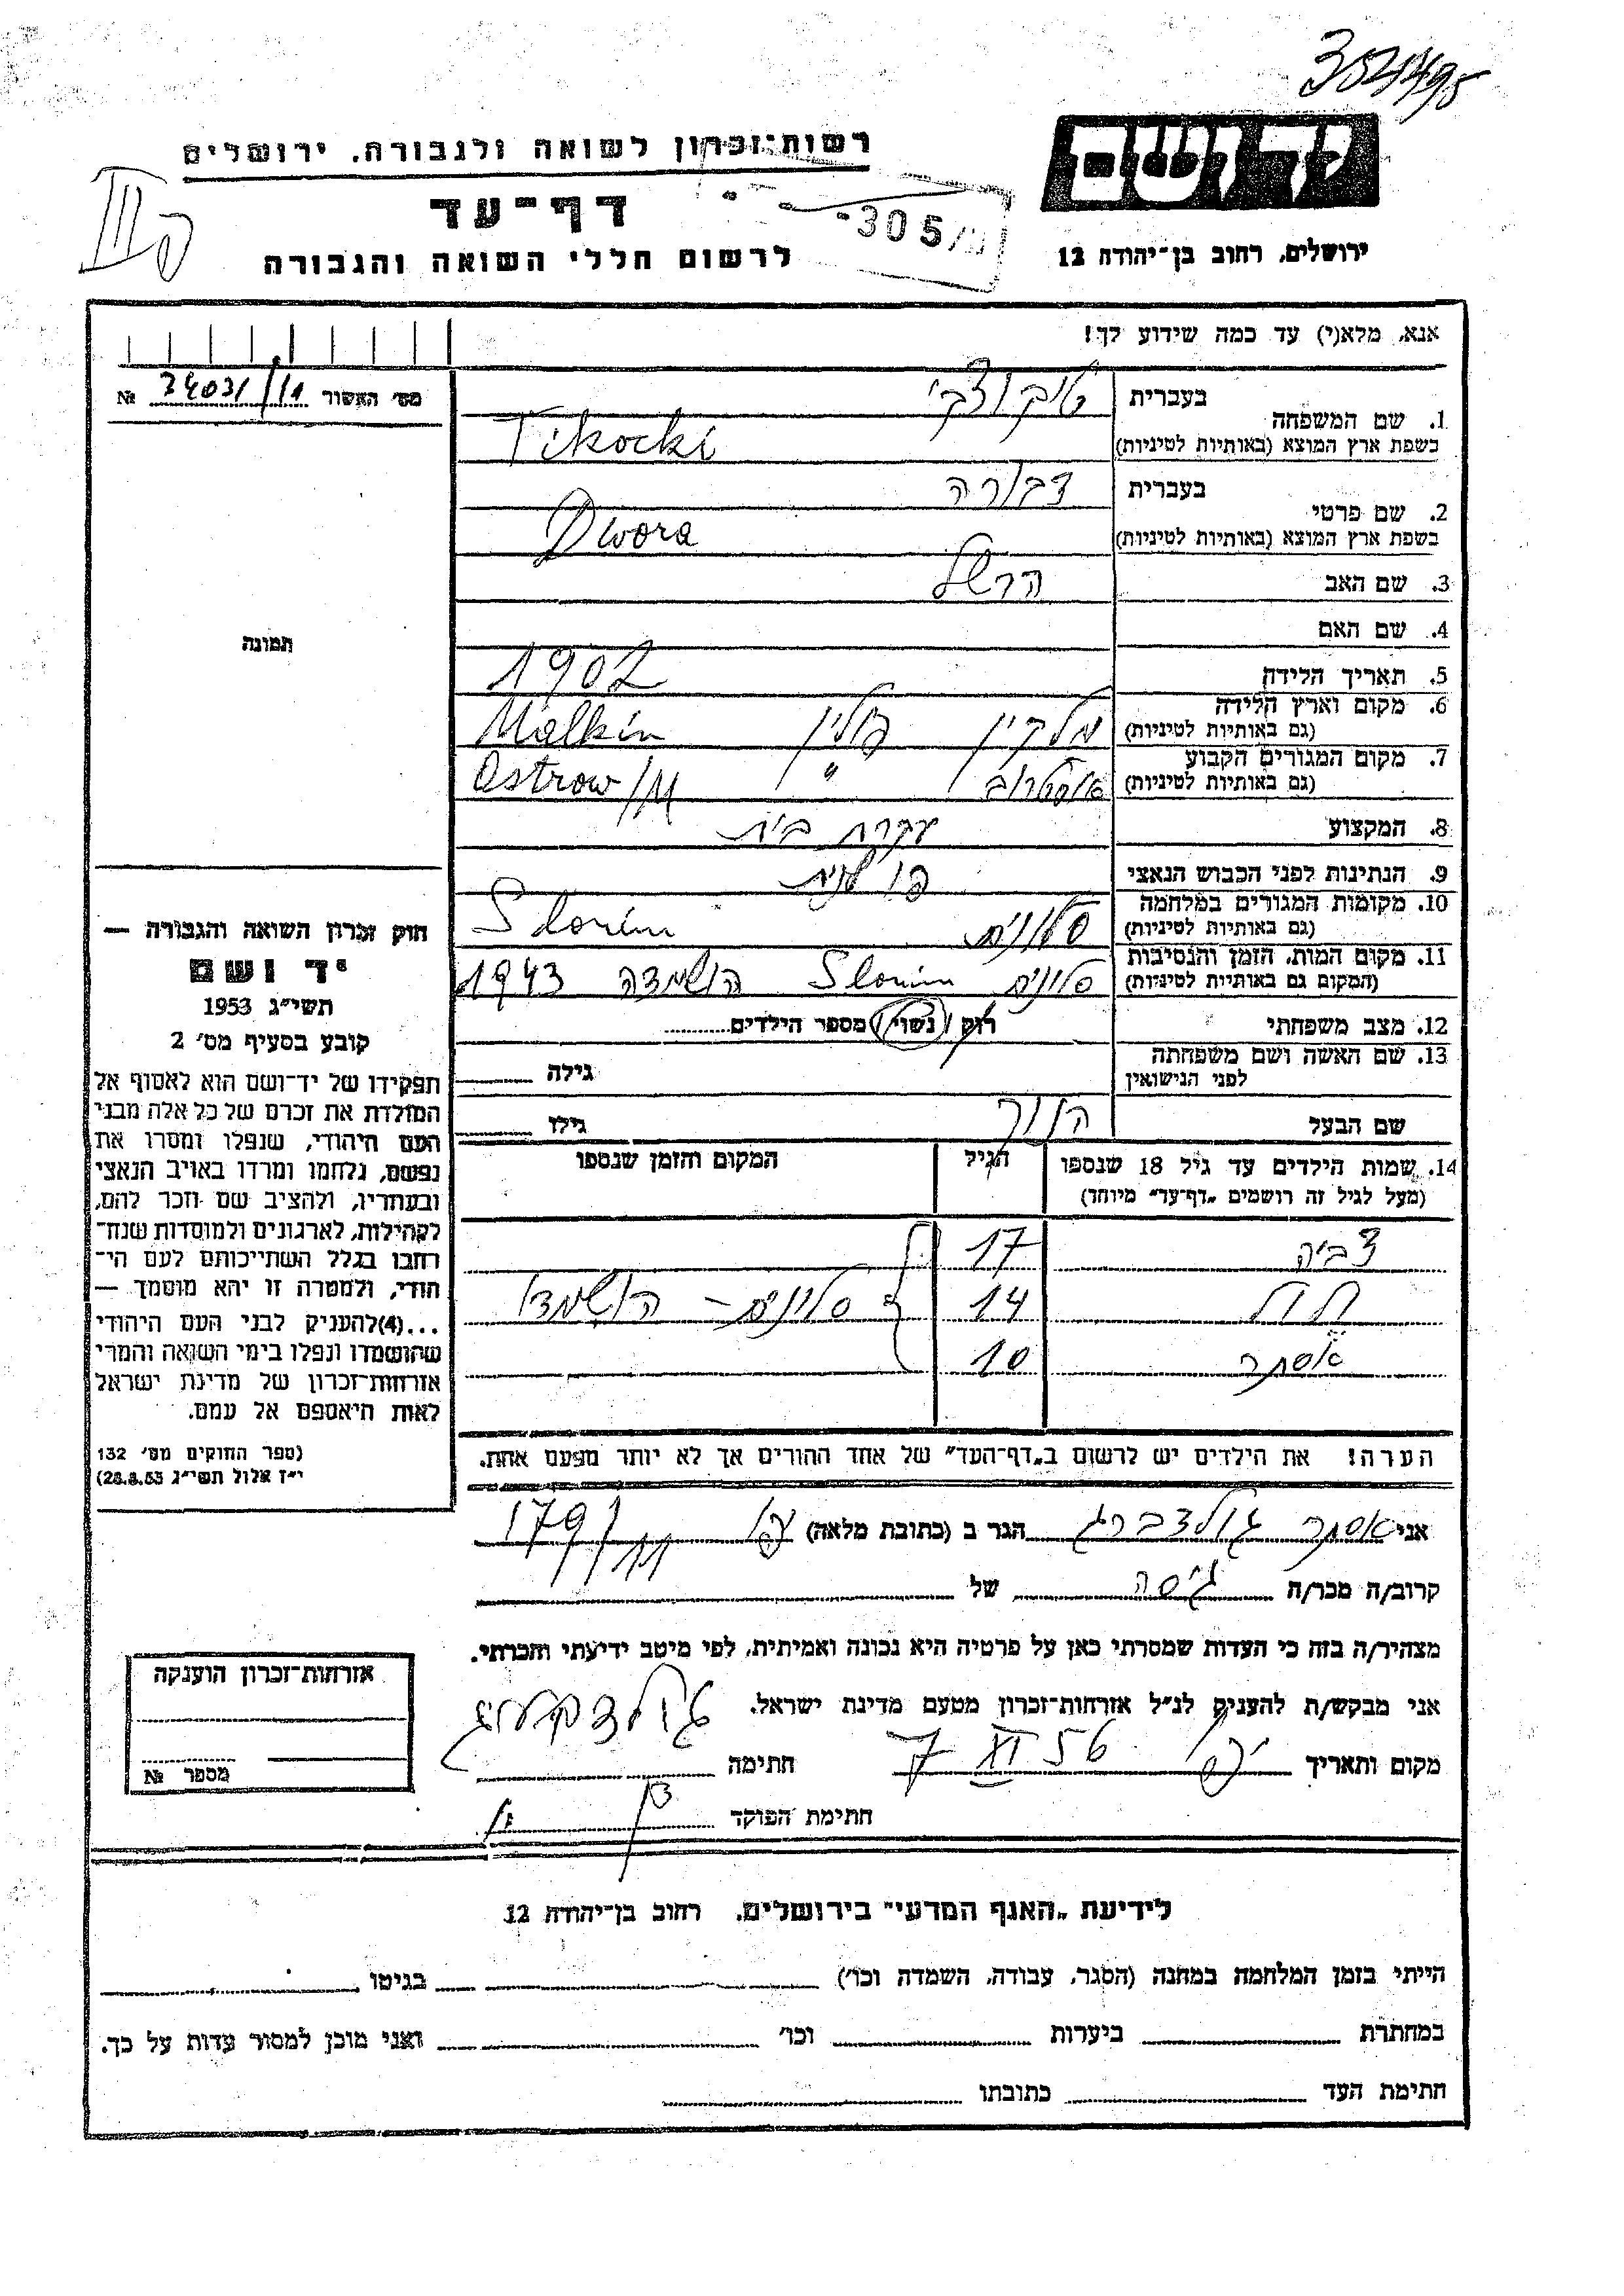 3521495
יד ושם
רשות־זכרון לשואה ולגבורה, ירושלים
דף־עד
לרשום חללי השואה והגבורה
ירושלים, רחוב בן־יהודה 12
305
אנא, מלא(י) עד כמה שידוע לך!
מס' האשור 34031/11 №
תמונה
1. שם המשפחה
בעברית טיקוצקי
בשפת ארץ המוצא (באותיות לטיניות) Tikocki
2. שם פרטי
בעברית דבורה
בשפת ארץ המוצא (באותיות לטיניות) Dwora
3. שם האב הרשל
4. שם האם
5. תאריך הלידה 1902
6. מקום וארץ הלידה (גם באותיות לטיניות) מלקין פולין Malkin
7. מקום המגורים הקבוע (גם באותיות לטיניות) אוסטרוב " Ostrow/M
8. המקצוע עקרת בית
9. הנתינות לפני הכבוש הנאצי פולנית
10. מקומות המגורים במלחמה (גם באותיות לטיניות) סלונים Slonim
11. מקום המות, הזמן והנסיבות (המקום גם באותיות לטיניות) סלונים Slonim הושמדה 1943
12. מצב משפחתי רוק / נשוי / מספר הילדים
13. שם האשה ושם משפחתה לפני הנישואין גילה
שם הבעל גילו
14. שמות הילדים עד גיל 18 שנספו (מעל לגיל זה רושמים „דף־עד" מיוחד) הגיל המקום והזמן שנספו
צביה 17
14 סלונים - הושמדו
אסתר 10
הערה! את הילדים יש לרשום ב„דף־העד" של אחד ההורים אך לא יותר מפעם אחת.
חוק זכרון השואה והגבורה —
יד ושם
תשי"ג 1953
קובע בסעיף מס' 2
תפקידו של יד־ושם הוא לאסוף אל
המולדת את זכרם של כל אלה מבני
העם היהודי, שנפלו ומסרו את
נפשם, נלחמו ומרדו באויב הנאצי
ובעוזריו, ולהציב שם וזכר להם,
לקהילות, לארגונים ולמוסדות שנח־
רבו בגלל השתייכותם לעם הי־
הודי, ולמטרה זו יהא מוסמך —
...(4)להעניק לבני העם היהודי
שהושמדו ונפלו בימי השואה והמרי
אזרחות־זכרון של מדינת ישראל
לאות היאספם אל עמם.
(ספר החוקים מס' 132
י"ז אלול תשי"ג 28.8.53)
אני אסתר גולדברג הגר ב (כתובת מלאה) 179/11
קרוב/ה מכר/ה גיסה של
מצהיר/ה בזה כי העדות שמסרתי כאן על פרטיה היא נכונה ואמיתית, לפי מיטב ידיעתי והכרתי.
אני מבקש/ת להעניק לנ"ל אזרחות־זכרון מטעם מדינת ישראל.
מקום ותאריך יפו 7 XI 56 חתימה
חתימת הפוקד
אזרחות־זכרון הוענקה
מספר №
לידיעת „האגף המדעי" בירושלים, רחוב בן־יהודה 12
הייתי בזמן המלחמה במחנה (הסגר, עבודה, השמדה וכו') בגיטו
במחתרת ביערות וכו' ואני מוכן למסור עדות על כך.
חתימת העד כתובתו